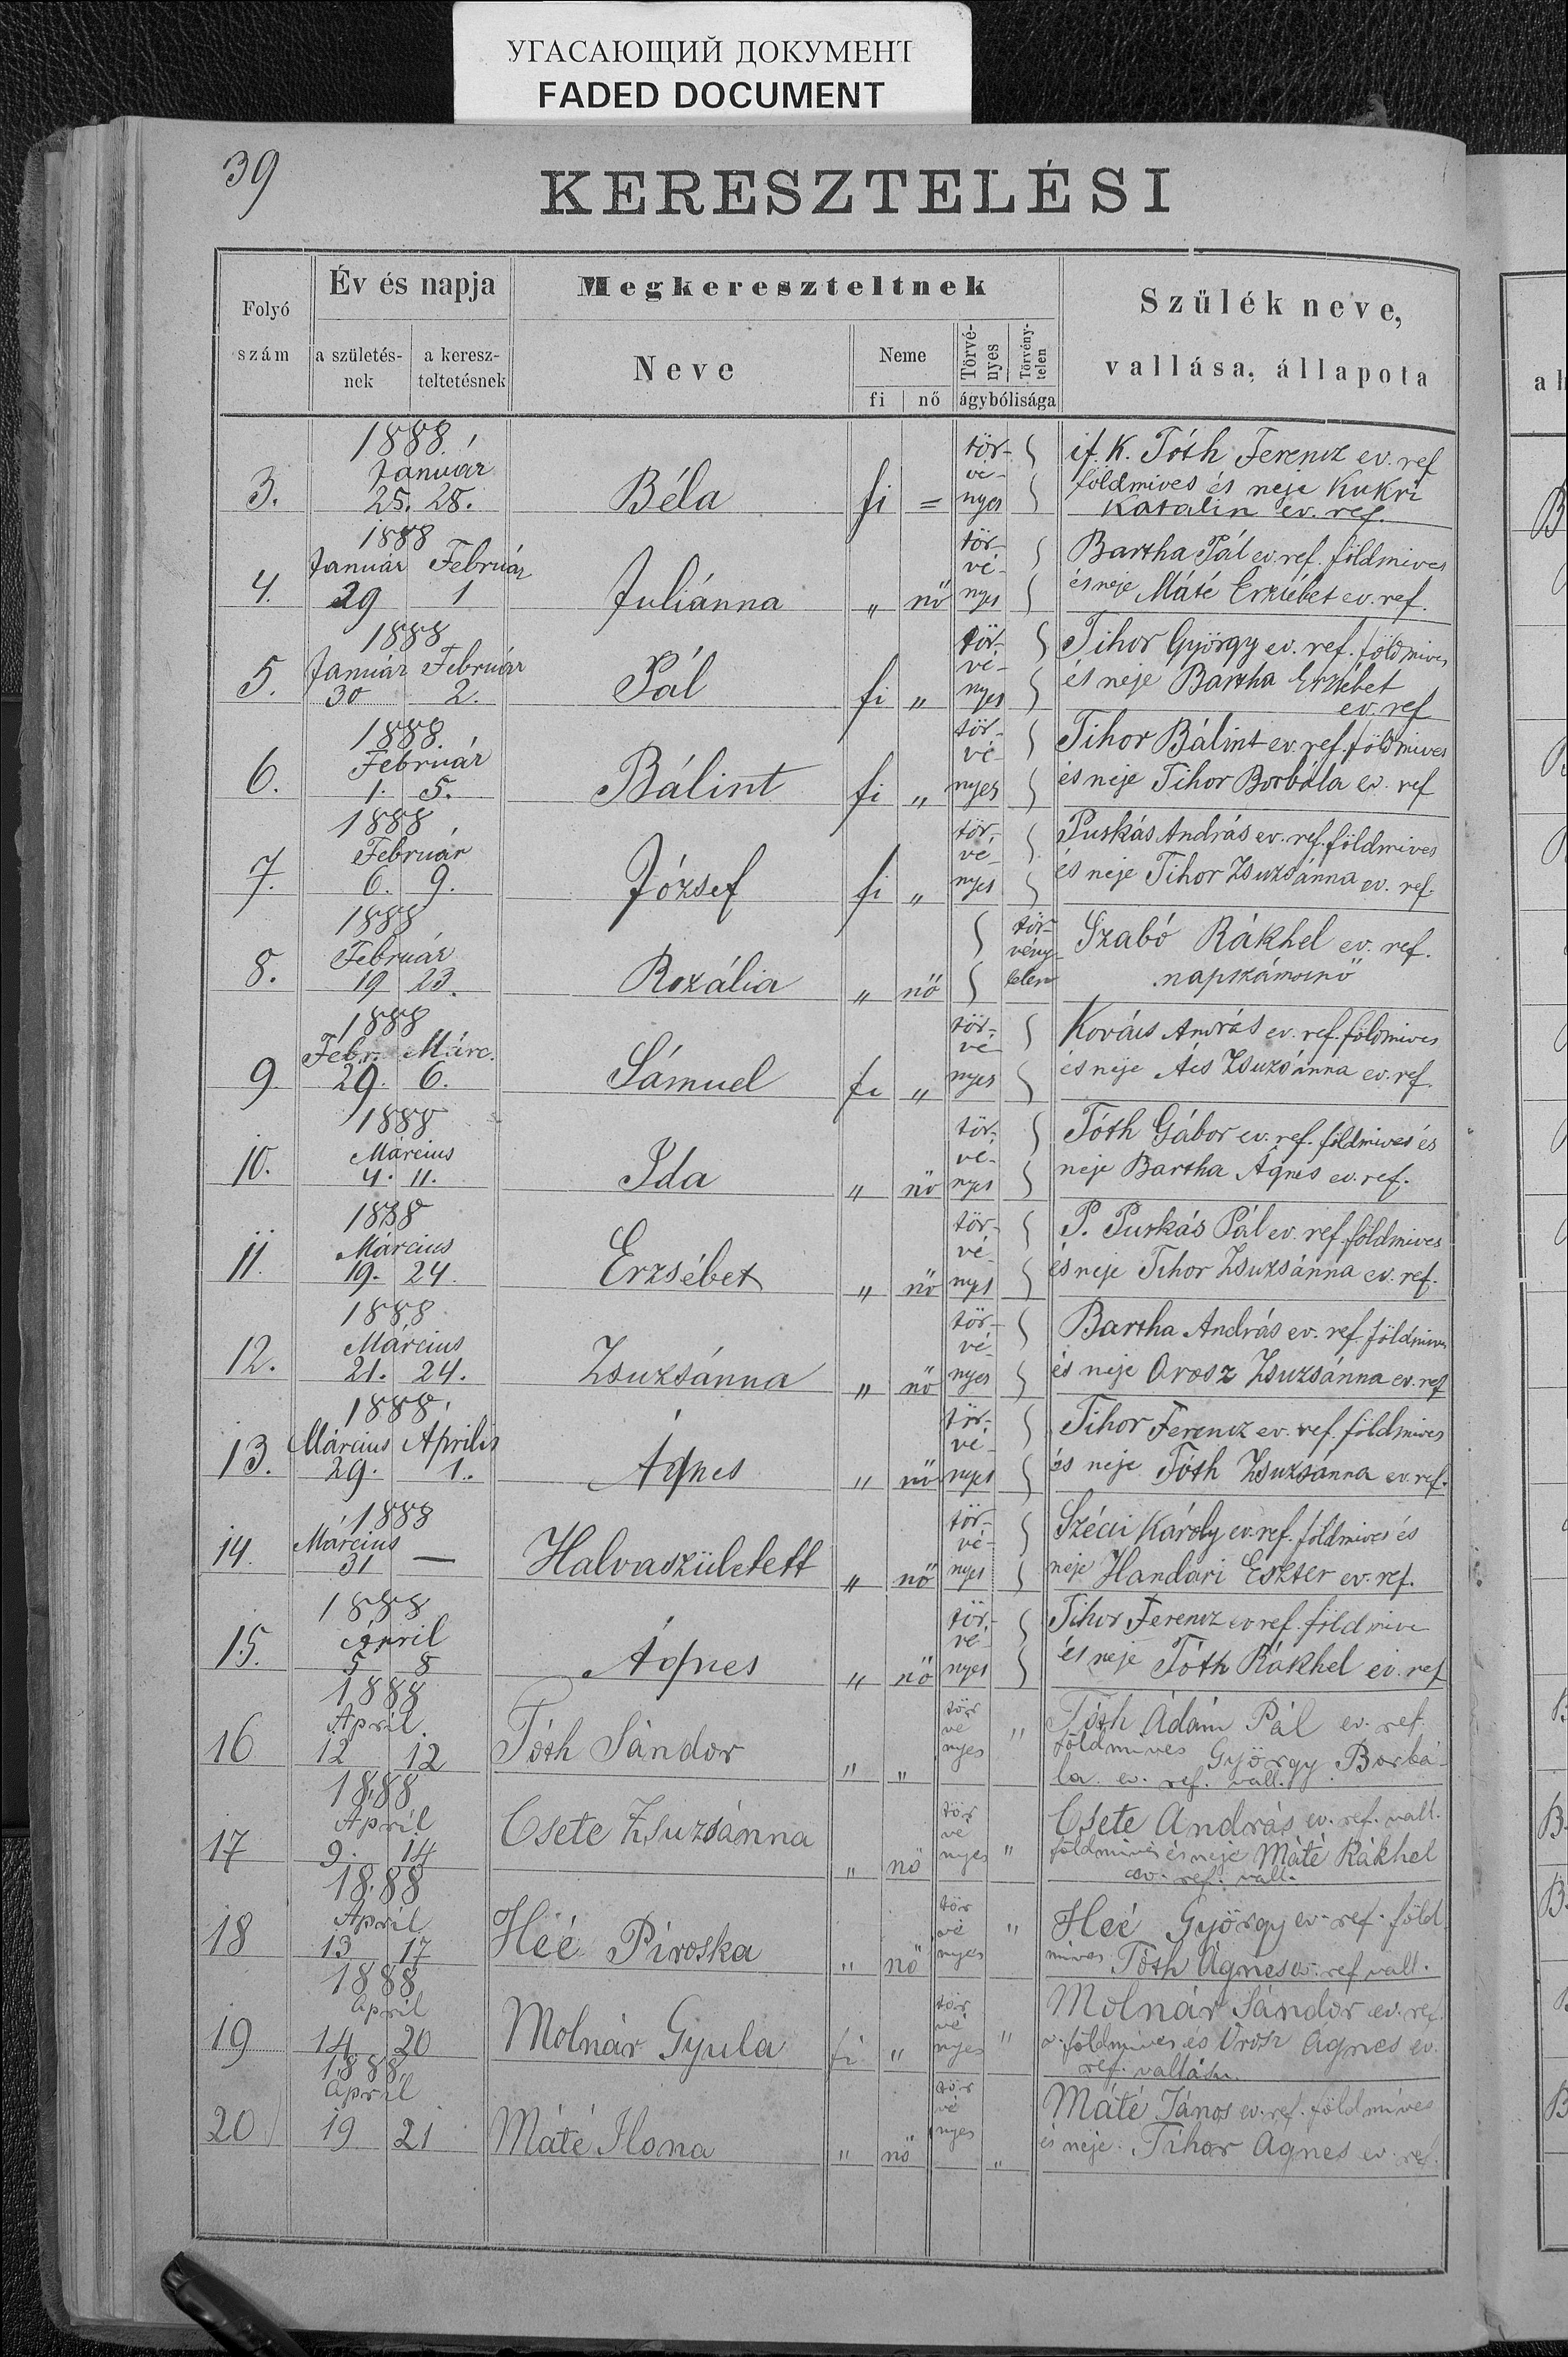 УГАСАЮЩИЙ ДОКУМЕНТ
FADED DOCUMENT
39
KERESZTELÉSI
Folyó szám
Év és napja
a születés-nek
a keresz-teltetésnek
Megkereszteltnek
Neve
Neme
fi nő
Törvé-nyes
Törvény-telen
ágybólisága
Szülék neve,
vallása, állapota
3. 1888. Január 25. 28. Béla fi = tör-vé-nyes if. K. Tóth Ferencz ev. ref
földmives és neje Kukri
Katalin ev. ref.
4. 1888 Január 29 Február 1 Juliánna „ nő tör-vé-nyes Bartha Pál ev. ref. földmives
és neje Máté Erzsébet ev. ref.
5. 1888 Január 30 Február 2. Pál fi „ tör-vé-nyes Tihor György ev. ref. földmives
és neje Bartha Erzsébet
ev. ref
6. 1888. Február 1. 5. Bálint fi „ tör-vé-nyes Tihor Bálint ev. ref. földmives
és neje Tihor Borbála ev. ref
7. 1888 Február 6. 9. József fi „ tör-vé-nyes Puskás András ev. ref. földmives
és neje Tihor Zsuzsánna ev. ref.
8. 1888 Február 19 23. Rozália „ nő tör-vény-telen Szabó Rákhel ev. ref.
napszámosnő
9 1888 Febr. 29. Márc. 6. Sámuel fi „ tör-vé-nyes Kovács András ev. ref. földmives
és neje Ács Zsuzsánna ev. ref.
10. 1888 Március 4. 11. Ida „ nő tör-vé-nyes Tóth Gábor ev. ref. földmives és
neje Bartha Ágnes ev. ref.
11. 1888 Március 19. 24. Erzsébet „ nő tör-vé-nyes P. Puskás Pál ev. ref. földmives
és neje Tihor Zsuzsánna ev. ref.
12. 1888 Március 21. 24. Zsuzsánna „ nő tör-vé-nyes Bartha András ev. ref. földmives
és neje Orosz Zsuzsánna ev. ref
13. 1888. Március 29. Április 1. Ágnes „ nő tör-vé-nyes Tihor Ferencz ev. ref. földmives
és neje Tóth Zsuzsánna ev. ref.
14. 1888 Március 31 — Halvaszületett „ nő tör-vé-nyes Szécsi Károly ev. ref. földmives és
neje Handari Eszter ev. ref.
15. 1888 Ápril 5 8 Ágnes „ nő tör-vé-nyes Tihor Ferencz ev ref. földmive
és neje Tóth Rákhel ev. ref
16 1888 April. 12 12 Tóth Sándor „ „ tör vé nyes „ Tóth Ádám Pál ev. ref.
földmives György Borbá-
la ev. ref. vall.
17 1888 April 9. 14 Csete Zsuzsánna „ nő tör vé nyes „ Csete András ev. ref. vall.
földmives és neje Máté Rákhel
ev. ref. vall.
18 1888 April 13 17 Héé Piroska „ nő tör vé nyes „ Héé György ev. ref. föld
mives Tóth Ágnes ev. ref vall.
19 1888 April 14 20 Molnár Gyula fi „ tör vé nyes „ Molnár Sándor ev. ref.
földmives és Orosz Ágnes ev.
ref. vallásu.
20 1888 April 19 21 Máté Ilona „ nő tör vé nyes „ Máté János ev. ref. földmives
és neje. Tihor Ágnes ev. ref.